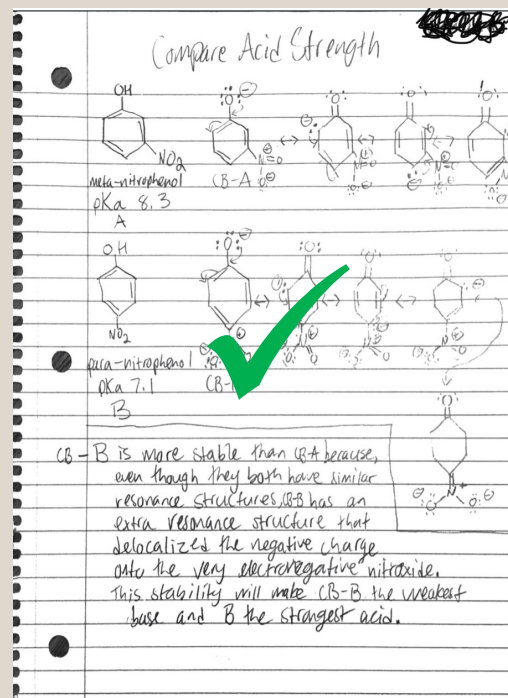 Compare Acid Strength
OH
NO₂
meta-nitrophenol
pKa 8.3
A
CB-A
OH
NO₂
para-nitrophenol
pKa 7.1
B
CB-B is more stable than CB-A because,
even though they both have similar
resonance structures, CB-B has an
extra resonance structure that
delocalized the negative charge
onto the very electronegative nitroxide.
This stability will make CB-B the weakest
base and B the strongest acid.